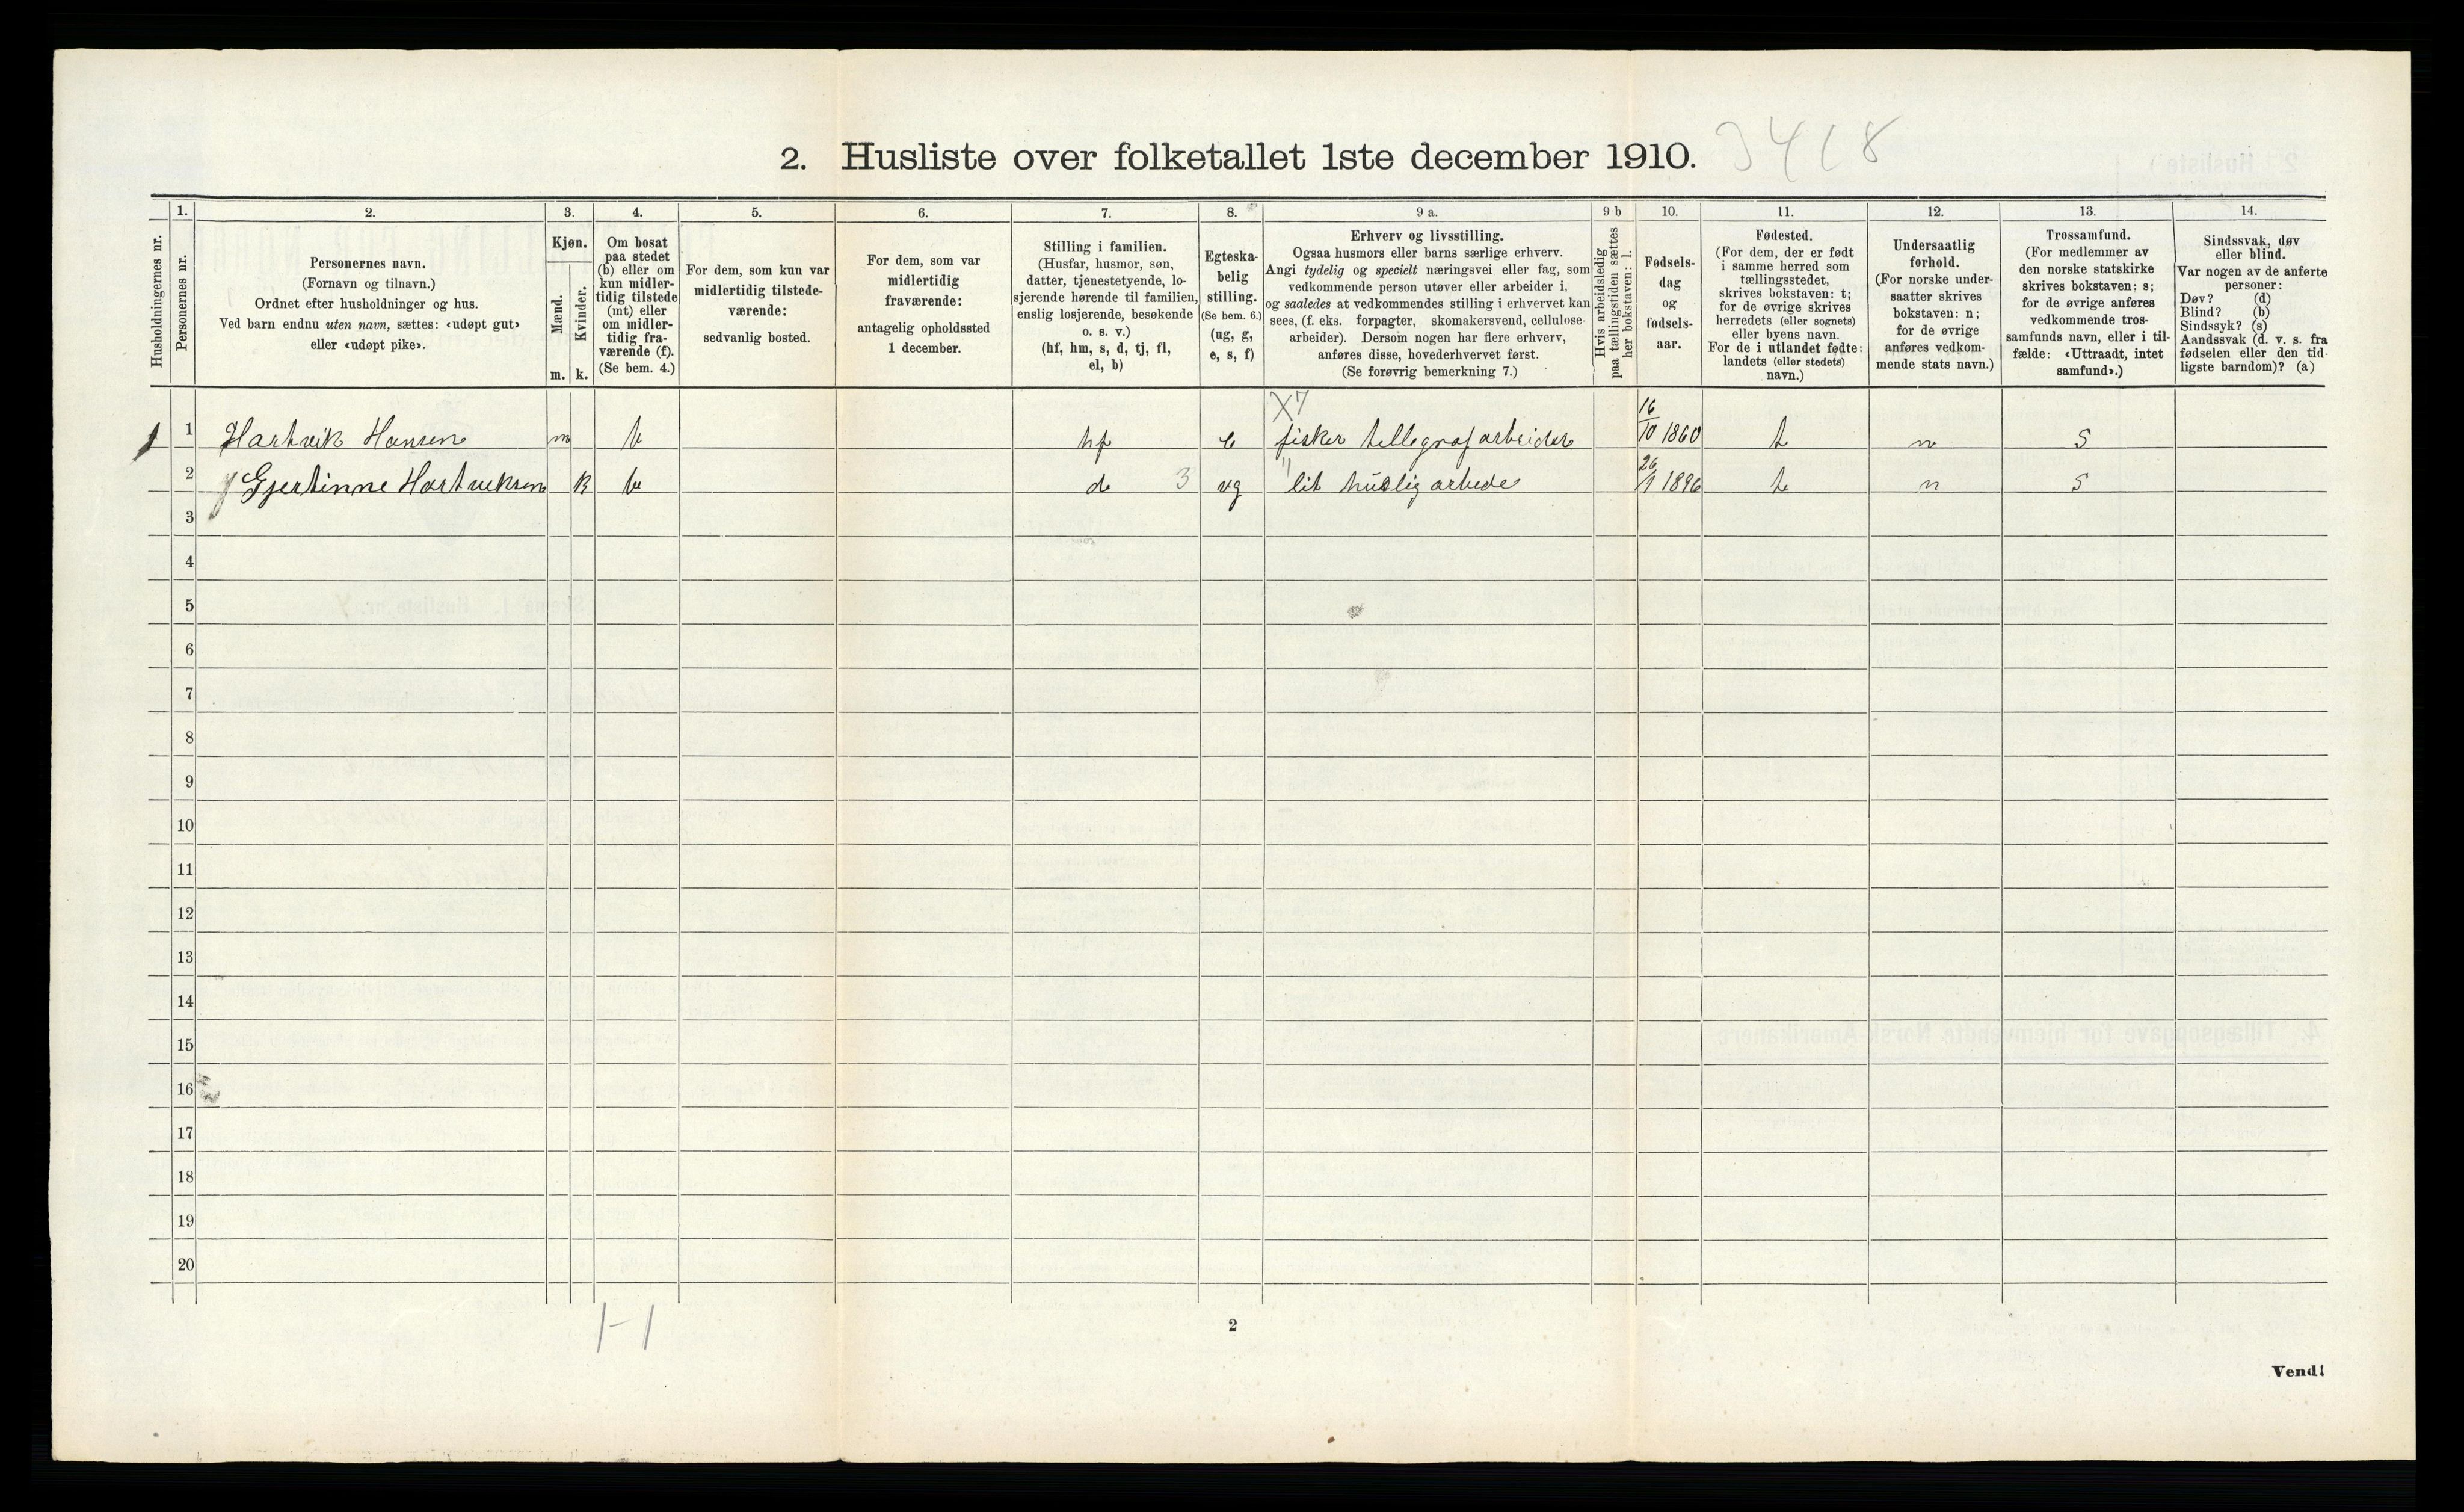 2. Husliste over folketallet 1ste december 1910. 3418
Husholdningernes nr.
1.
Personernes nr.
2.
Personernes navn.
(Fornavn og tilnavn.)
Ordnet efter husholdninger og hus.
Ved barn endnu uten navn, sættes: «udøpt gut»
eller «udøpt pike».
3.
Kjøn.
Mænd.
Kvinder.
m. k.
4.
Om bosat
paa stedet
(b) eller om
kun midler-
tidig tilstede
(mt) eller
om midler-
tidig fra-
værende (f).
(Se bem. 4.)
5.
For dem, som kun var
midlertidig tilstede-
værende:
sedvanlig bosted.
6.
For dem, som var
midlertidig
fraværende:
antagelig opholdssted
1 december.
7.
Stilling i familien.
(Husfar, husmor, søn,
datter, tjenestetyende, lo-
sjerende hørende til familien,
enslig losjerende, besøkende
o. s. v.)
(hf, hm, s, d, tj, fl,
el, b)
8.
Egteska-
belig
stilling.
(Se bem. 6.)
(ug, g,
e, s, f)
9 a.
Erhverv og livsstilling.
Ogsaa husmors eller barns særlige erhverv.
Angi tydelig og specielt næringsvei eller fag, som
vedkommende person utøver eller arbeider i,
og saaledes at vedkommendes stilling i erhvervet kan
sees, (f. eks. forpagter, skomakersvend, cellulose-
arbeider). Dersom nogen har flere erhverv,
anføres disse, hovederhvervet først.
(Se forøvrig bemerkning 7.)
9 b
Hvis arbeidsledig
paa tællingstiden sættes
her bokstaven: l.
10.
Fødsels-
dag
og
fødsels-
aar.
11.
Fødested.
(For dem, der er født
i samme herred som
tællingsstedet,
skrives bokstaven: t;
for de øvrige skrives
herredets (eller sognets)
eller byens navn.
For de i utlandet fødte:
landets (eller stedets)
navn.)
12.
Undersaatlig
forhold.
(For norske under-
saatter skrives
bokstaven: n;
for de øvrige
anføres vedkom-
mende stats navn.)
13.
Trossamfund.
(For medlemmer av
den norske statskirke
skrives bokstaven: s;
for de øvrige anføres
vedkommende tros-
samfunds navn, eller i til-
fælde: «Uttraadt, intet
samfund».)
14.
Sindssvak, døv
eller blind.
Var nogen av de anførte
personer:
Døv? (d)
Blind? (b)
Sindssyk? (s)
Aandssvak (d. v. s. fra
fødselen eller den tid-
ligste barndom)? (a)
X7
1 1 Hartvik Hansen m b hf e fisker tellegrafarbeider 16/10 1860 t n s
2 Gjertinne Hartviksen k b d 3 ug " lit huslig arbede 26/1 1896 t n s
3
4
5
6
7
8
9
10
11
12
13
14
15
16
17
18
19
20
1-1
2
Vend!